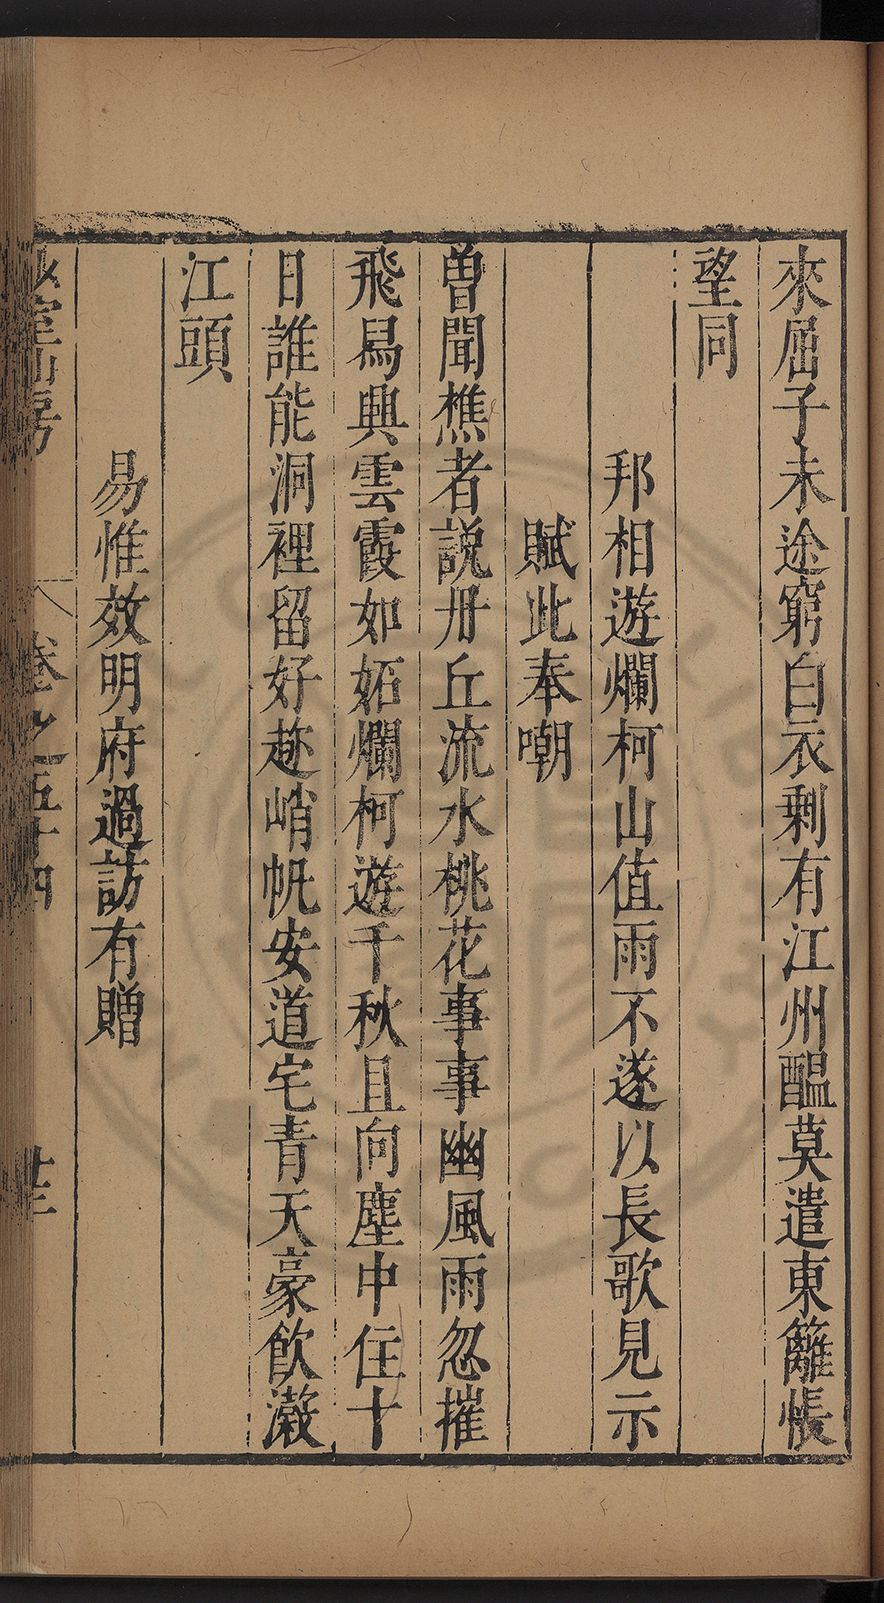 來屈子未途窮白衣剩有江州醞莫遣東籬悵
望同
邦相遊爛柯山值雨不遂以長歌見示
賦此奉嘲
曾聞樵者説丹丘流水桃花事事幽風雨忽摧
飛舄興雲霞如妬爛柯遊千秋且向塵中住十
日誰能洞裡留好趂峭帆安道宅青天豪飲瀔
江頭
易惟效明府過訪有贈
室山房
卷之五十四